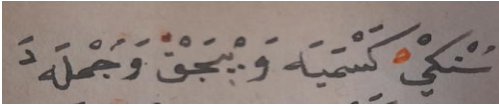 سُنْكِيْ ه كَسْمَيَه وَيْبَجَقْ وَجُمْلَه دَ